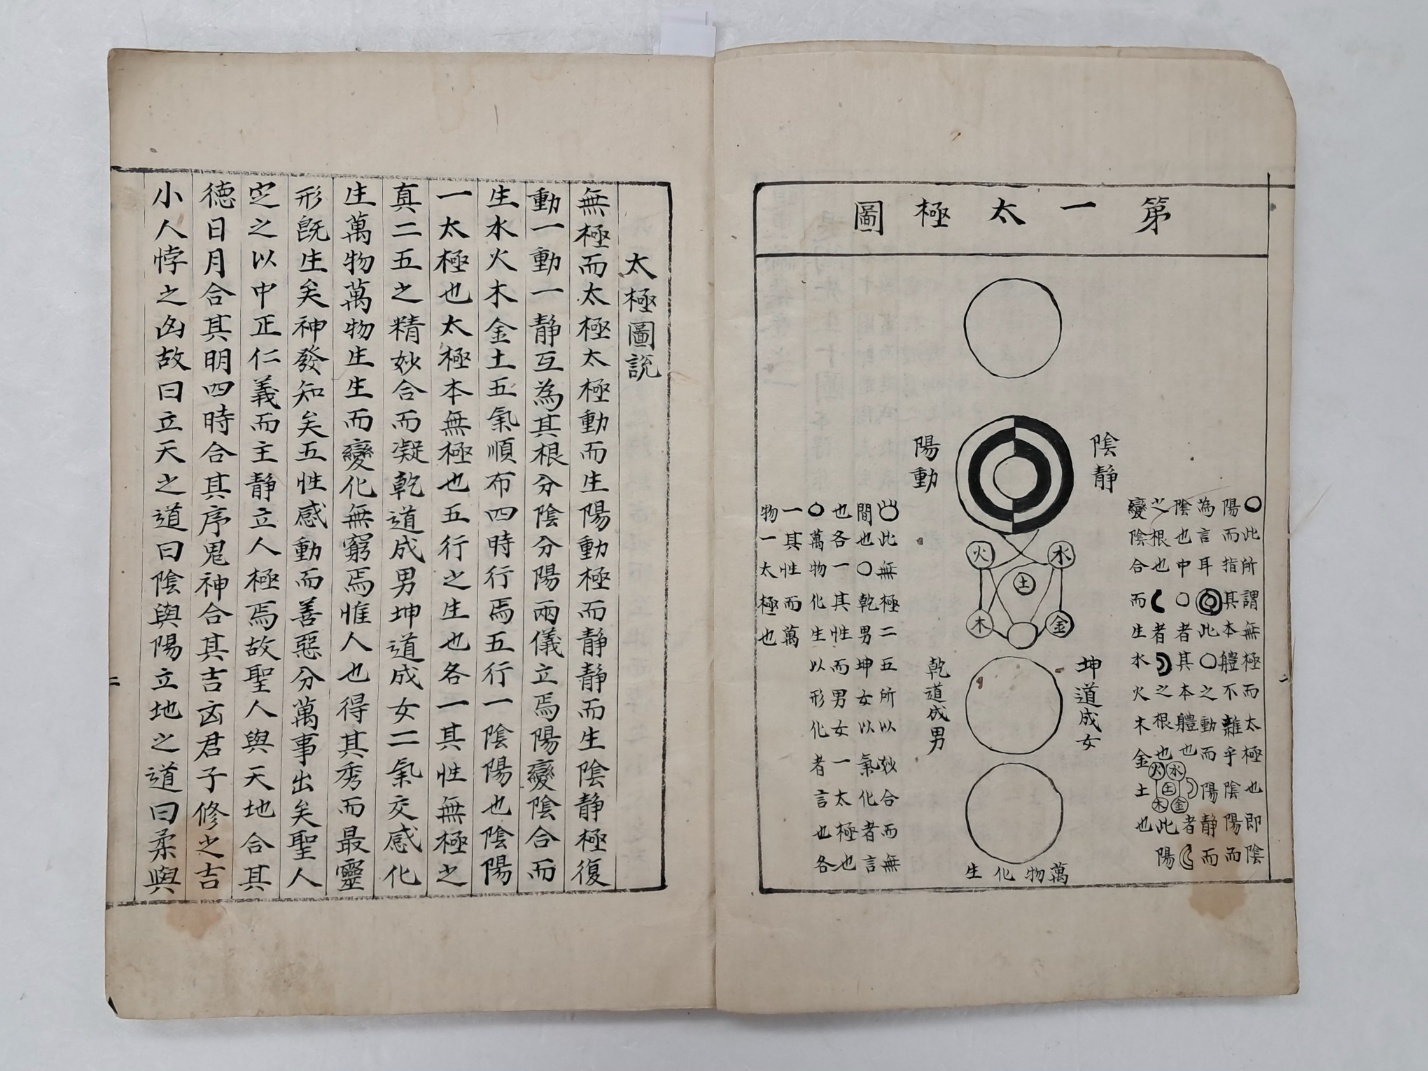 第一太極圖
陰靜
陽動
水
火
土
金
木
坤道成女
乾道成男
萬物化生
○此所謂無極而太極也即陰
陽而指其本軆不雜乎陰陽而
為言耳◎此○之動而陽靜而
陰也中○者其本軆也☽者☾
之根也☾者☽之根也水火土金木此陽
變陰合而生水火木金土也
此無極二五所以妙合而無
間也○乾男坤女以氣化者言
也各一其性而男女一太極也
○萬物化生以形化者言也各
一其性而萬
物一太極也
太極圖說
無極而太極太極動而生陽動極而靜靜而生陰靜極復
動一動一靜互為其根分陰分陽兩儀立焉陽變陰合而
生水火木金土五氣順布四時行焉五行一陰陽也陰陽
一太極也太極本無極也五行之生也各一其性無極之
真二五之精妙合而凝乾道成男坤道成女二氣交感化
生萬物萬物生生而變化無窮焉惟人也得其秀而最靈
形既生矣神發知矣五性感動而善惡分萬事出矣聖人
定之以中正仁義而主靜立人極焉故聖人與天地合其
德日月合其明四時合其序鬼神合其吉凶君子修之吉
小人悖之凶故曰立天之道曰陰與陽立地之道曰柔與
二